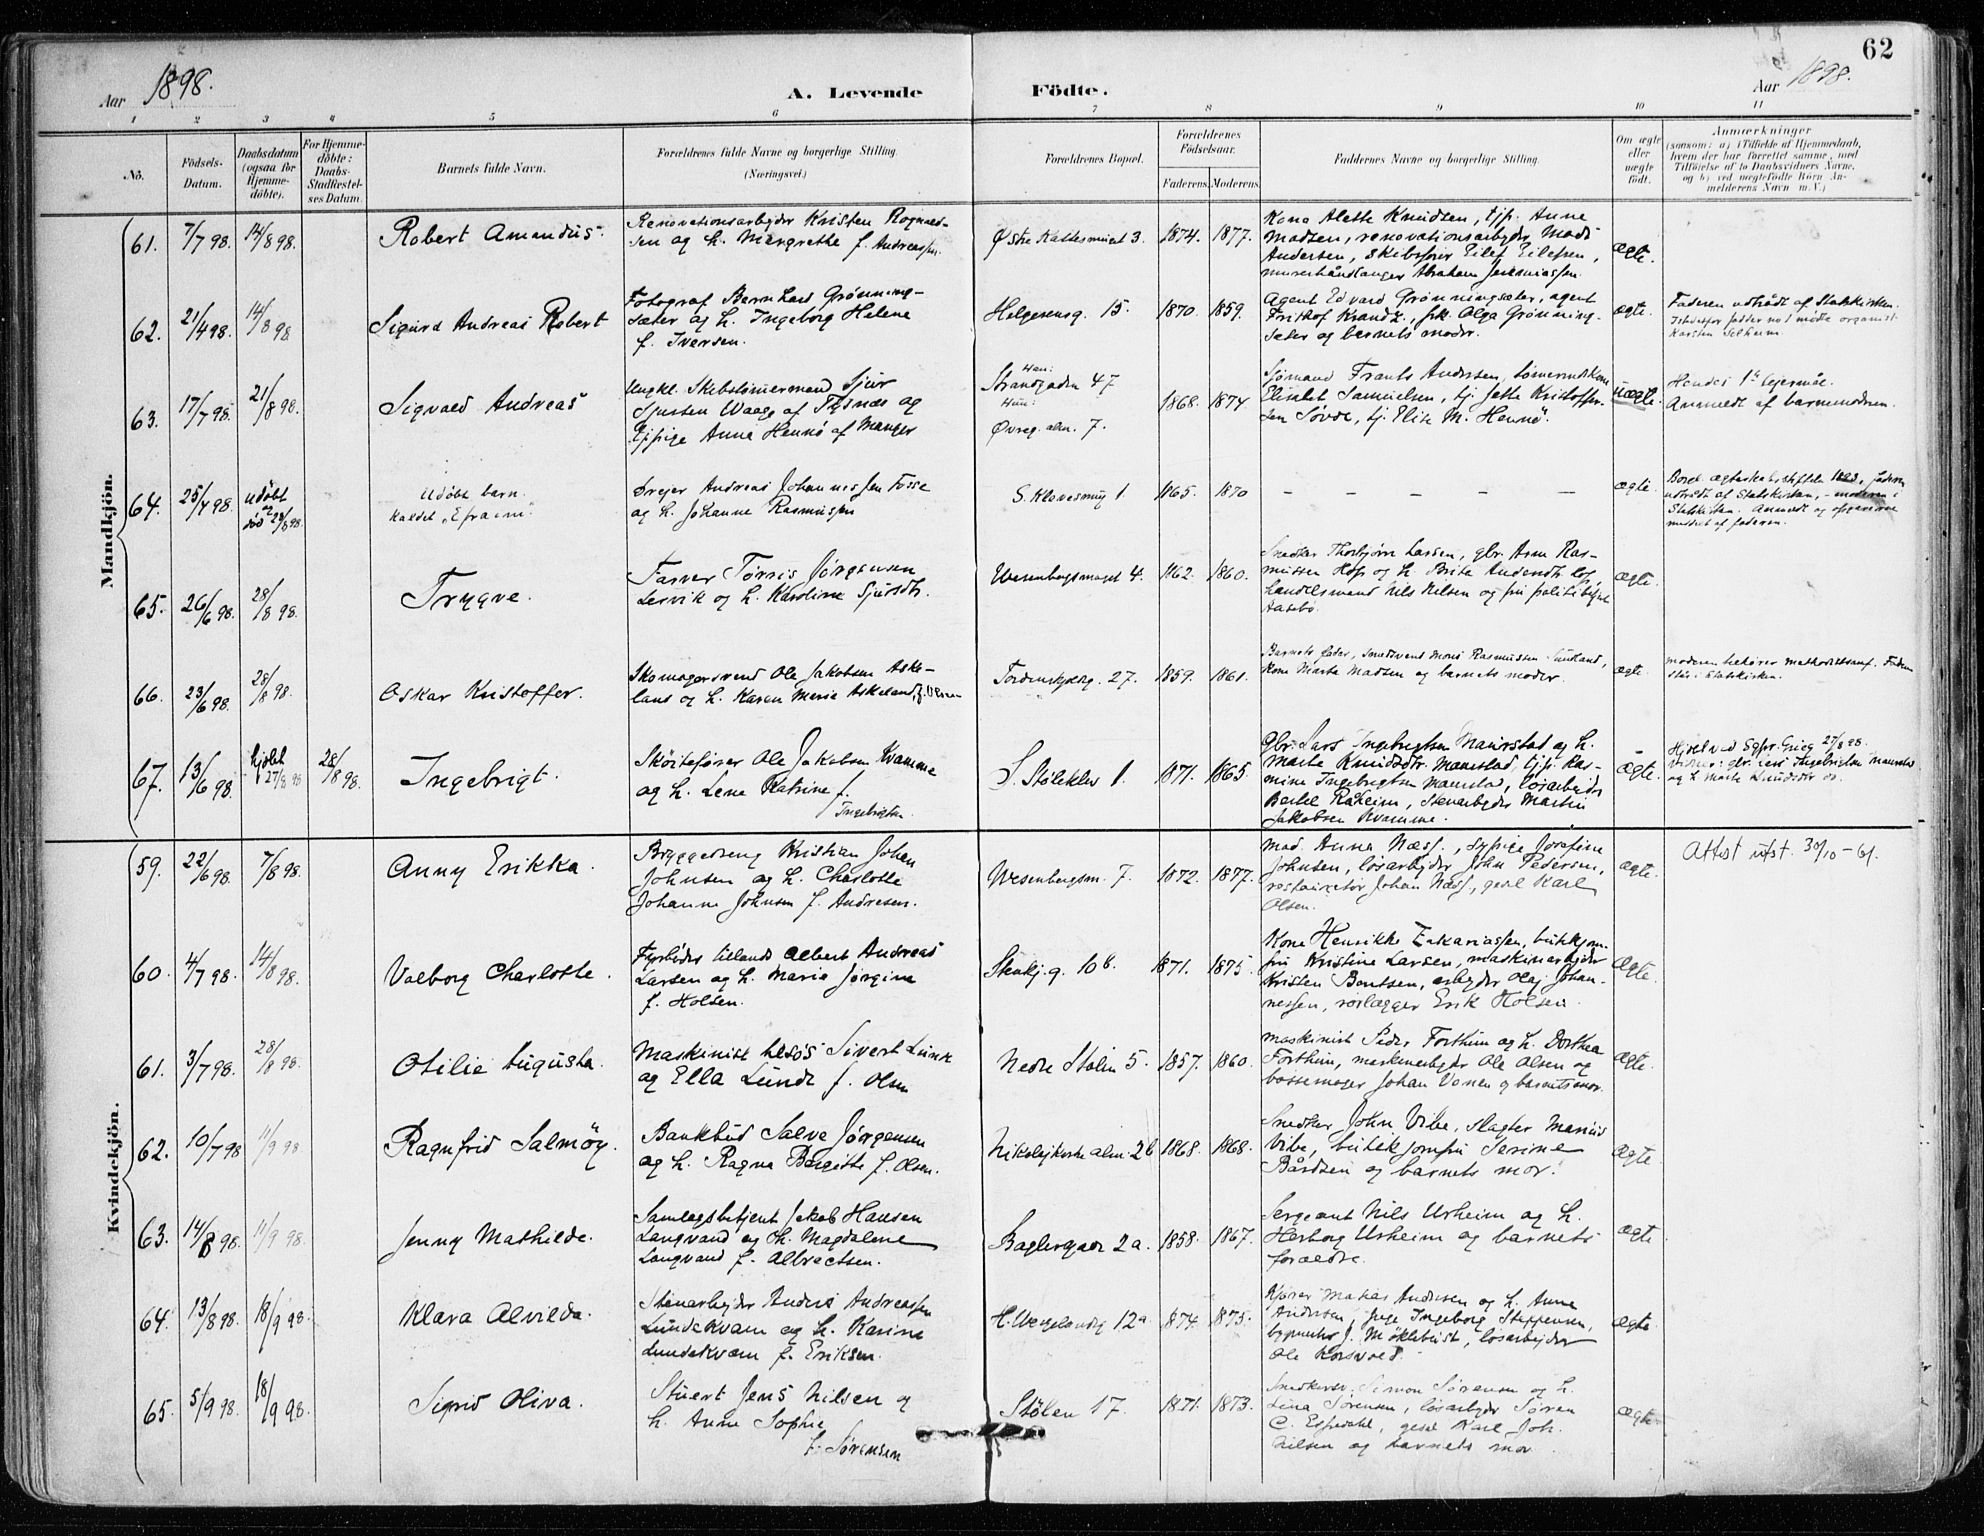 62
Aar 1898.
A. Levende Födte.
Aar 1898.
1 2 3 4 5 6 7 8 9 10 11
No.
Födsels-
Datum.
Daabsdatum
(ogsaa for
Hjemme-
döbte).
For Hjemme-
döbte:
Daabs-
Stadfæstel-
ses Datum.
Barnets fulde Navn.
Forældrenes fulde Navne og borgerlige Stilling.
(Næringsvei.)
Forældrenes Bopæl.
Forældrenes
Födselsaar.
Faderens. Moderens.
Faddernes Navne og borgerlige Stilling.
Om ægte
eller
uægte
födt.
Anmærkninger
(saasom: a) i Tilfælde af Hjemmedaab,
hvem der har forrettet samme, med
Tilföielse af to Daabsvidners Navne,
og b) ved uægtefödte Börn An-
melderens Navn m. V.)
Mandkjön.
61. 7/7 98. 14/8 98. Robert Amandus.
Renovationsarbejder Kristen Rognald-
sen og h. Margrethe f. Andreassen.
Østre Kattesmuet 3. 1874. 1877.
Kona Alette Knudsen, tjp. Anne
Madsen, renovationsarbejder Mads
Andersen, skibsfører Eilef Eilefsen,
murerhåndlanger Abraham Jeremiassen.
ægte.
62. 21/4 98. 14/8 98 Sigurd Andreas Robert
Fotograf Bernhard Grønning-
sæter og h. Ingeborg Helene
f. Iversen.
Helgesensg. 15. 1870. 1859.
Agent Edvard Grønningsæter, agent
Fritjof Krantz, frk. Olga Grønning-
sæter og barnets moder.
ægte.
Faderen udtrådt af Statskirken.
Istedetfor fadder no 1 mødte organist
Karsten Solheim.
63. 17/7 98. 21/8 98. Sigvald Andreas
Ungkl. Skibstømmermand Sjur
Sjursen Waage af Tysnæs og
Tjpige Anna Hennø af Manger
Han:
Strandgaden 47
Hun:
Øvreg. alm. 7.
1868. 1874.
Sjømand Frants Andersen, tømmermdskone
Elisabet Samuelsen, tj. Jette Kristoffer-
sen Søvde, tj. Elise M. Hennø.
uægte.
Hendes 1ste lejermål.
Anmeldt af barnemoderen.
64. 25/4 98. Udøbt
død
Udøbt barn.
kaldet "Efraim".
Drejer Andreas Johannessen Fosse
og h. Johanne Rasmussen
S. Klevesmug 1. 1865. 1870
— — — — —
ægte.
udtrådt af Statskirken, – moderen i
Statskirken.
65. 26/6 98. 28/8 98. Trygve.
Farver Tørris Jørgensen
Lervik og h. Karoline Sjursdtr.
Wesenbergsmuget 4. 1862. 1860.
Snedker Thorbjørn Larsen, gbr. Arne Ras-
mussen og h. Brita
handelsmand Nils Nilsen og fru
Aasebø.
ægte.
66. 23/6 98. 28/8 98. Oskar Kristoffer.
Skomagersvend Ole Jakobsen Aske-
land og h. Karen Marie Askeland, f. Olsen
Tordenskjoldg. 27. 1859. 1861.
Barnets fader, smedsvend Mons Rasmussen
kone Marta Madsen og barnets moder.
ægte.
moderen tilhører methodistsamf. Faderen
står i Statskirken.
67. 13/6 98. hjdøbt 27/8 98 28/8 98. Ingebrigt.
Skøitefører Ole Jakobsen Kvamme
og h. Lene Katrine f.
Ingebrigtsen.
S. Støleklev 1. 1871. 1865.
Gbr. Lars Ingebrigtsen Maurstad og h.
Marte Knudsdtr. Maurstad, tjp. Ras-
mine Ingebrigtsen Maurstad, løsarbejder
Bertel Råheim, Stenarbejder Martin
Jakobsen Kvamme.
ægte.
Hjdøbt ved Sgpr. Grieg 27/8 98.
og h. Marte Knudsdtr. do.
Kvindekjön.
59. 22/6 98. 7/8 98. Anny Erikka.
Bryggedreng Kristian Johan
Johnsen og h. Charlotte
Johanne Johnsen f. Andresen.
Wesenbergsm. 7. 1872. 1877.
Mad. Anna Næss, sypige Josefine
Johnsen, løsarbejder John Pedersen,
restauratør Johan Næss, gesel Karl
Olsen.
ægte.
Attst utst. 30/10 - 61.
60. 4/7 98. 14/8 98. Valborg Charlotte.
Fyrbøder Albert Andreas
Larsen og h. Marie Jørgine
f. Holsen.
Stenkj.g. 10 b. 1871. 1875.
Kone Henrikke Zakariassen, butikjom-
fru Kristine Larsen, maskinarbejder
Kristen Berntsen, arbejder Olaj Johan-
nessen, rørlægger Erik Holsen.
ægte.
61. 3/7 98. 28/8 98. Otilie Augusta.
Maskinist tilsøs Sivert Lunde
og Ella Lunde f. Olsen
Nedre Stølen 5. 1857. 1860.
Maskinist Peder Forthun og h. Dorthea
Forthun, maskinarbejder Ole Olsen og
bøssemager Johan Vonen og barnets mor.
ægte.
62. 10/7 98 11/9 98 Ragnfrid Salmøy.
Bankbud Salve Jørgensen
og h. Ragna Bergitte f. Olsen.
Nikolajkirkealm. 2b 1868. 1868.
Snedker John Vibe, slagter Marius
Vibe, butikjomfru Serine
Bårdsen og barnets mor.
ægte
63. 14/8 98. 11/9 98. Jenny Mathilde.
Samlagsbetjent Jakob Hansen
Langvand og h. Magdalene
Langvand f. Albrectsen.
Baglergaden 2a. 1858. 1867.
Sergeant Nils Urheim og h.
Herborg Urheim og barnets
forældre.
ægte
64. 13/8 98. 18/9 98. Klara Alvilda.
Stenarbejder Anders Andreassen
Lundekvam og h. Karina
Lundekvam f. Eriksen.
H. Wergelandsg 12a 1874. 1875.
Kjører Matias Andersen og h. Anne
Andersen, pige Ingeborg Steffensen,
J. Møklebust, løsarbejder
Ole Korsvold.
ægte
65. 5/9 98. 18/9 98. Sigrid Oliva.
Stuert Jens Nilsen og
h. Anne Sophie
f. Sørensen
Stølen 17. 1871. 1873.
Snedkersv. Simon Sørensen og h.
Lina Sørensen, løsarbejder Søren
C. Espedahl, gesel Karl Joh.
Nilsen og barnets mor
ægte